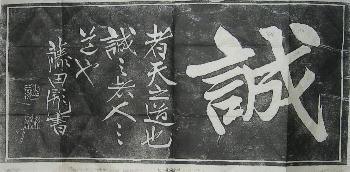 誠
者天之道也
誠之者人之
道也
藤田彪書